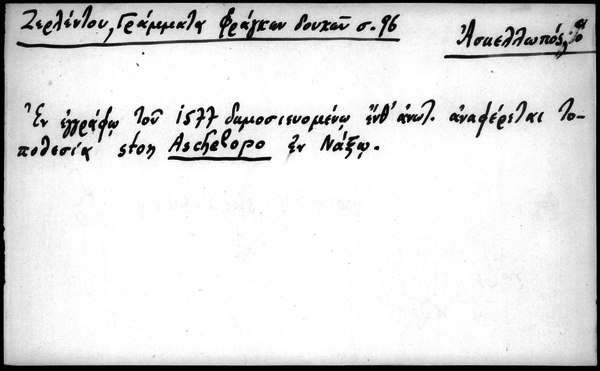 Ζερλέντου, Γράμματα Φράγκων δουκῶν σ. 96
Ἀσκελλωπός, ὁ
Ἐν ἐγγράφῳ τοῦ 1577 δημοσιευομένῳ ἔνθ' ἀνωτ. ἀναφέρεται το-
ποθεσία ston Aschelopo ἐν Νάξῳ.